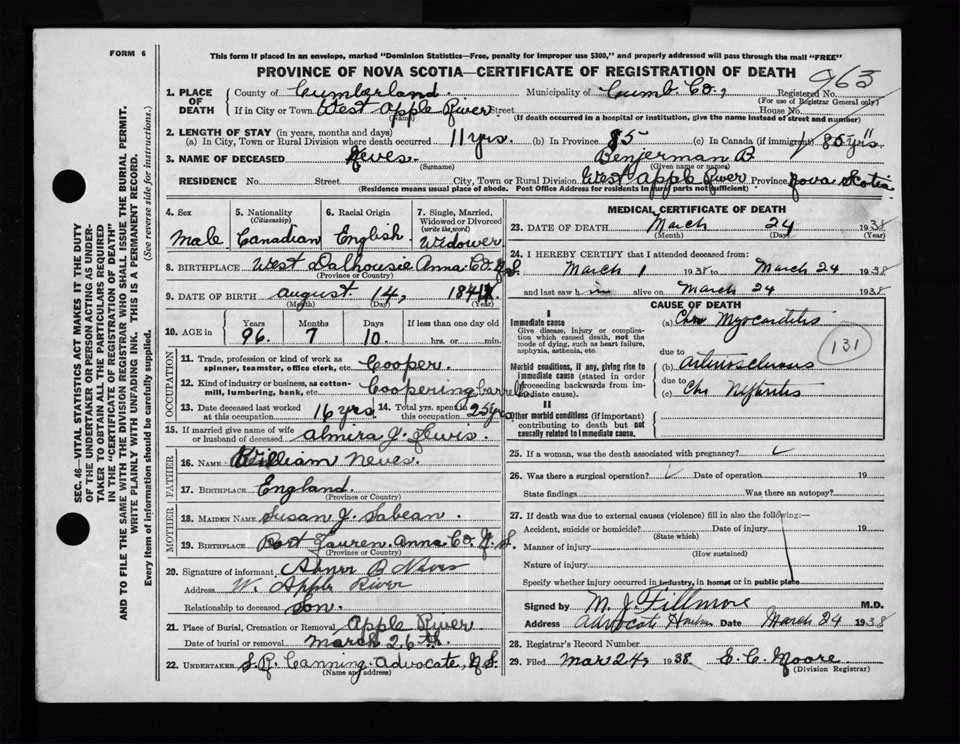 FORM 6
This form if placed in an envelope, marked "Dominion Statistics—Free, penalty for improper use $300," and properly addressed will pass through the mail "FREE"
PROVINCE OF NOVA SCOTIA—CERTIFICATE OF REGISTRATION OF DEATH
963
1. PLACE OF DEATH County of Cumberland. Municipality of Cumb. Co., Registered No.
(For use of Registrar General only)
If in City or Town West Apple River Street House No.
(Name) (If death occurred in a hospital or institution, give the name instead of street and number)
2. LENGTH OF STAY (in years, months and days)
(a) In City, Town or Rural Division where death occurred 11 yrs. (b) In Province 85 (c) In Canada (if immigrant) 85 yrs
3. NAME OF DECEASED Neves. Benjerman B.
(Surname) (Given name or names)
RESIDENCE No. Street City, Town or Rural Division West Apple River Province Nova Scotia
(Residence means usual place of abode. Post Office Address for residents in rural parts not sufficient)
4. Sex 5. Nationality (Citizenship) 6. Racial Origin 7. Single, Married, Widowed or Divorced (write the word)
Male Canadian English. Widower
8. BIRTHPLACE West Dalhousie Anna. Co. N.S.
(Province or Country)
9. DATE OF BIRTH August 14, 1841
(Month) (Day) (Year)
10. AGE in Years Months Days If less than one day old
96. 7 10 hrs. or min.
OCCUPATION
11. Trade, profession or kind of work as spinner, teamster, office clerk, etc. Cooper.
12. Kind of industry or business, as cotton-mill, lumbering, bank, etc. Coopering
13. Date deceased last worked at this occupation 16 yrs. 14. Total yrs. spent in this occupation 25 yrs.
15. If married give name of wife or husband of deceased Almira J. Lewis.
FATHER
16. NAME William Neves.
17. BIRTHPLACE England.
(Province or Country)
MOTHER
18. MAIDEN NAME Susan J. Sabean.
19. BIRTHPLACE Port Anna. Co. N.S.
(Province or Country)
20. Signature of informant Abner B Neves
Address W. Apple River
Relationship to deceased Son.
21. Place of Burial, Cremation or Removal Apple River
Date of burial or removal March 26th.
22. UNDERTAKER S.R. Canning. Advocate, N.S.
(Name and address)
MEDICAL CERTIFICATE OF DEATH
23. DATE OF DEATH March 24 1938
(Month) (Day) (Year)
24. I HEREBY CERTIFY that I attended deceased from:
March 1 1938 to March 24 1938
and last saw him alive on March 24 1938
CAUSE OF DEATH
I
Immediate cause
Give disease, injury or complication which caused death, not the mode of dying, such as heart failure, asphyxia, asthenia, etc.
(a) Chr Myocarditis
131
due to
Morbid conditions, if any, giving rise to immediate cause (stated in order proceeding backwards from immediate cause).
(b) Arteriosclerosis
due to
(c) Chr Nephritis
II
Other morbid conditions (if important) contributing to death but not causally related to immediate cause.
25. If a woman, was the death associated with pregnancy?
26. Was there a surgical operation? Date of operation 19
State findings Was there an autopsy?
27. If death was due to external causes (violence) fill in also the following:—
Accident, suicide or homicide? Date of injury 19
(State which)
Manner of injury
(How sustained)
Nature of injury
Specify whether injury occurred in industry, in home, or in public place
Signed by M. J. Fillmore M.D.
Address Advocate Harbor Date March 24 1938
28. Registrar's Record Number
29. Filed Mar 24, 1938 E. C. Moore.
(Division Registrar)
SEC. 46—VITAL STATISTICS ACT MAKES IT THE DUTY OF THE UNDERTAKER OR PERSON ACTING AS UNDERTAKER TO OBTAIN ALL THE PARTICULARS REQUIRED IN THE "CERTIFICATE OF REGISTRATION OF DEATH"
AND TO FILE THE SAME WITH THE DIVISION REGISTRAR WHO SHALL ISSUE THE BURIAL PERMIT.
WRITE PLAINLY WITH UNFADING INK. THIS IS A PERMANENT RECORD.
Every item of information should be carefully supplied. (See reverse side for instructions.)